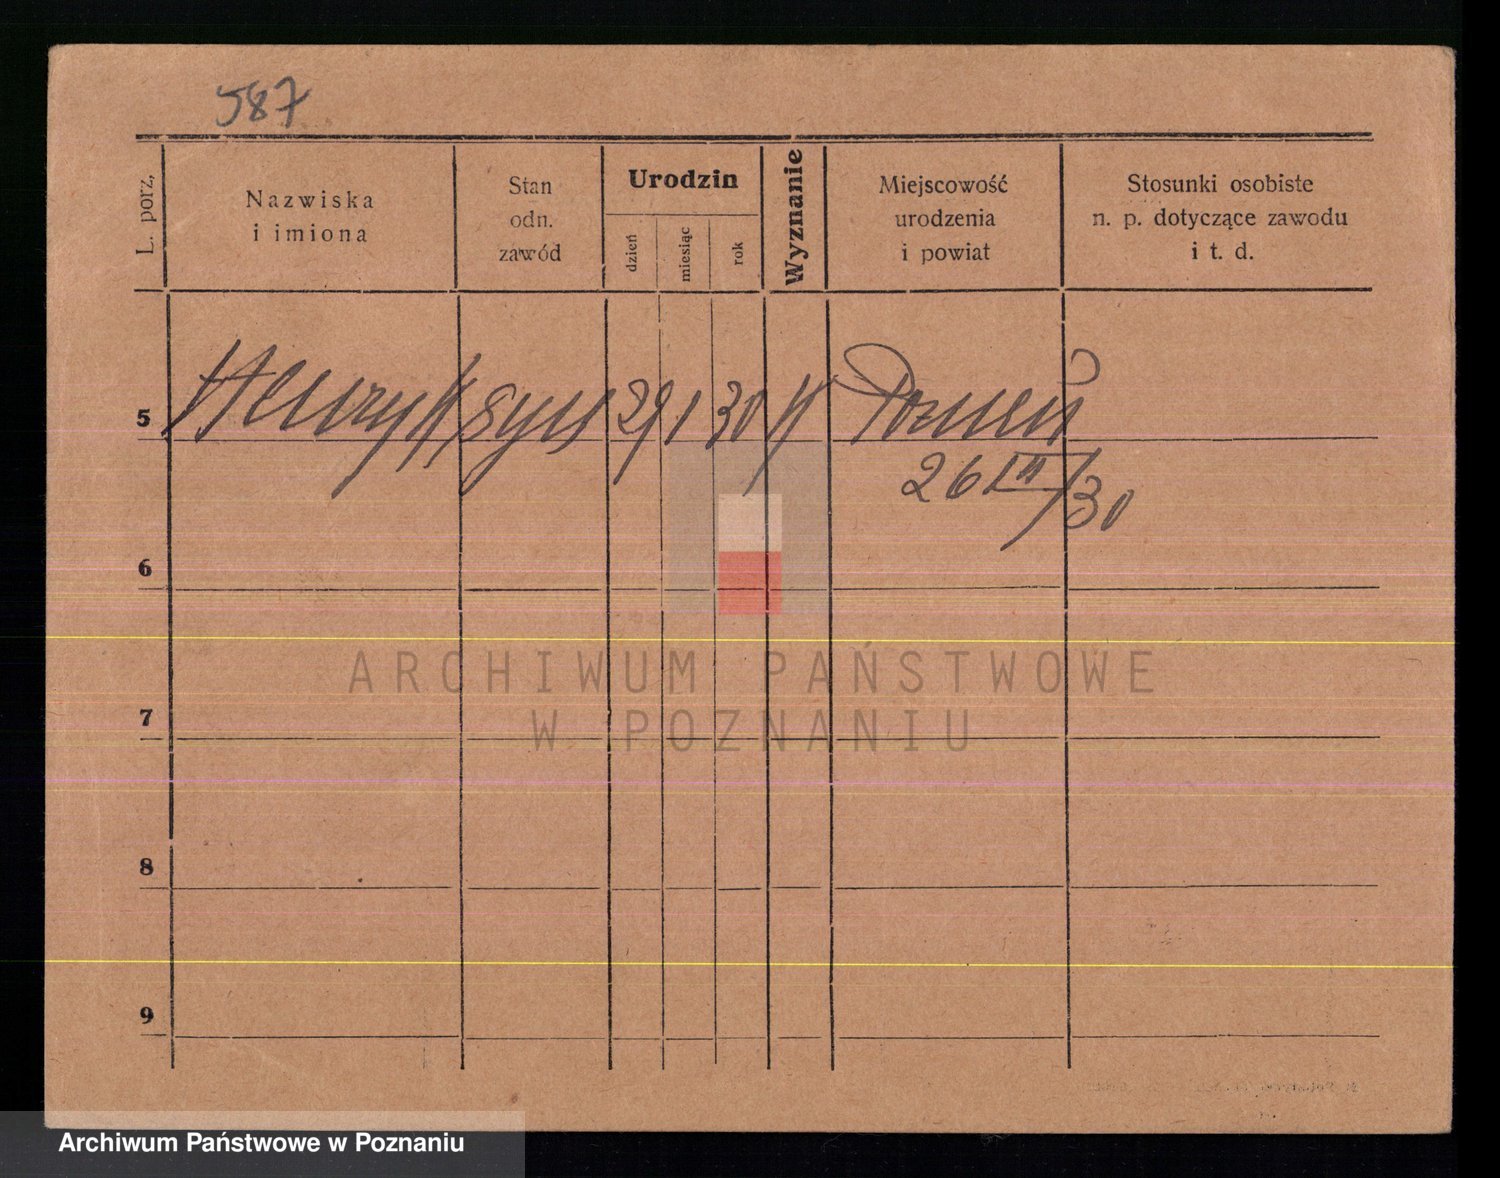 587
L. porz,
Nazwiska
i imiona
Stan
odn.
zawód
Urodzin
dzień
miesiąc
rok
Wyznanie
Miejscowość
urodzenia
i powiat
Stosunki osobiste
n. p. dotyczące zawodu
i t. d.
5 Henryk syn 29 1 30 k Poznań
26 III/30
6
ARCHIWUM PAŃSTWOWE
7
W POZNANIU
8
9
Archiwum Państwowe w Poznaniu